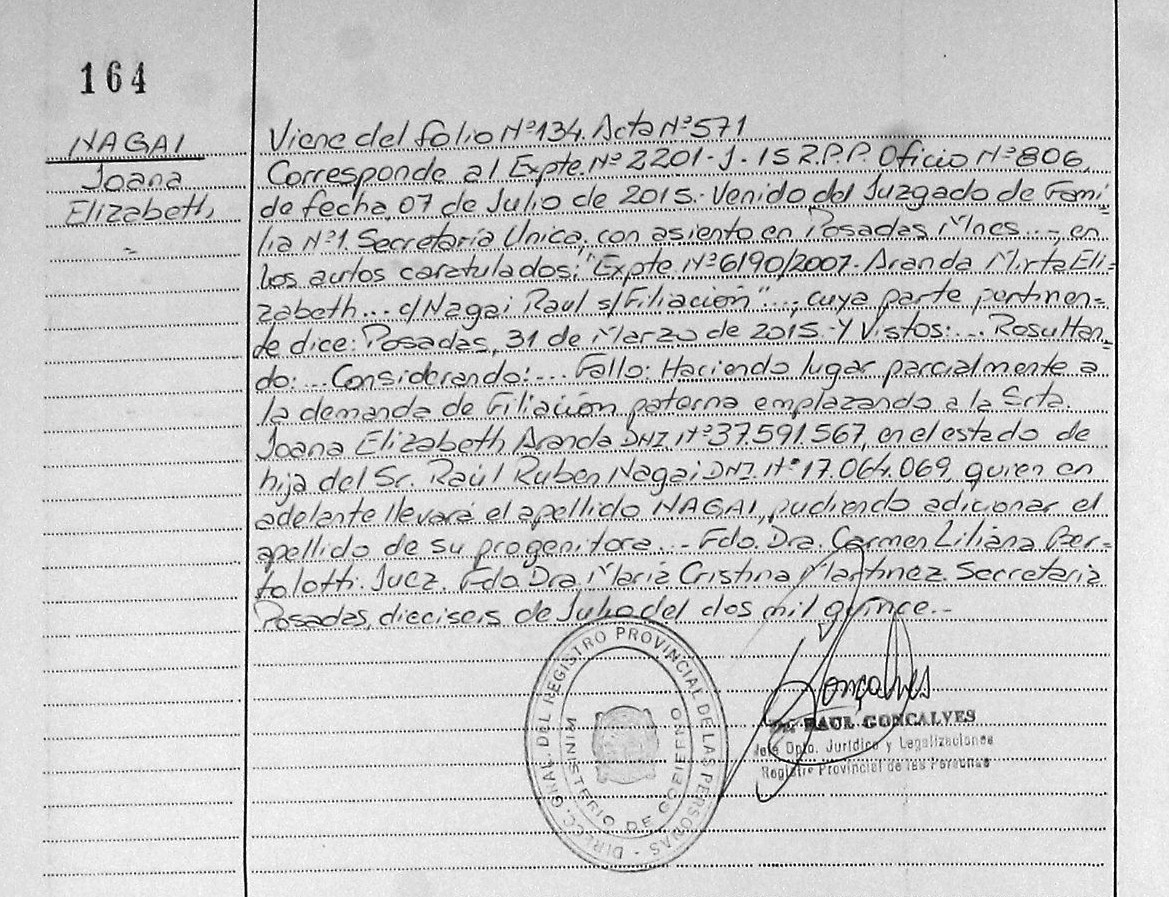 164
NAGAI
Joana
Elizabeth
Viene del folio Nº134. Acta Nº571
Corresponde al Expte. Nº 2201-J-15 R.P.P. Oficio Nº806,
de fecha, 07 de Julio de 2015.- Venido del Juzgado de Fami=
lia Nº1. Secretaría Unica, con asiento en Posadas Mnes...- en
los autos caratulados: "Expte. Nº6190/2007- Aranda Mirta Eli=
zabeth... c/Nagai Raul s/Filiación"..., cuya parte pertinen=
te dice: Posadas, 31 de Marzo de 2015.- Y Vistos:... Resultan=
do:... Considerando:... Fallo: Haciendo lugar parcialmente a
la demanda de Filiación paterna emplazando a la Srta.
Joana Elizabeth Aranda DNI. Nº37.591.567, en el estado de
hija del Sr. Raúl Ruben Nagai DNI. Nº17.064.069, quien en
adelante llevará el apellido NAGAI, pudiendo adicionar el
apellido de su progenitora...- Fdo. Dra. Carmen Liliana Ber=
tolotti. Juez. Fdo Dra Maria Cristina Martinez. Secretaria
Posadas, dieciseis de Julio del dos mil quince.-
DIRECC. GRAL. DEL REGISTRO PROVINCIAL DE LAS PERSONAS -
MINISTERIO DE GOBIERNO
Gonçalves
Dr. RAUL GONCALVES
Jefe Dpto. Jurídico y Legalizaciones
Registro Provincial de las Personas